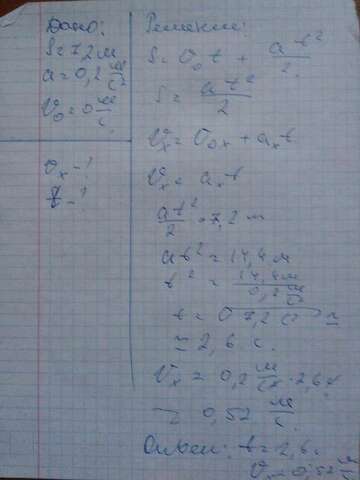 Дано:
S = 7,2 м
a = 0,2 м/с²
V₀ = 0 м/с
Vₓ - ?
t - ?
Решение:
S = V₀t + at²/2
S = at²/2
Vₓ = V₀ₓ + aₓt
Vₓ = aₓt
at²/2 = 7,2 м
at² = 14,4 м
t² = 14,4 м / 0,2 м/с²
≈ 2,6 с.
Vₓ = 0,2 м/с² · 2,6 с
≈ 0,52 м/с.
Ответ: t = 2,6 с
Vₓ = 0,52 м/с